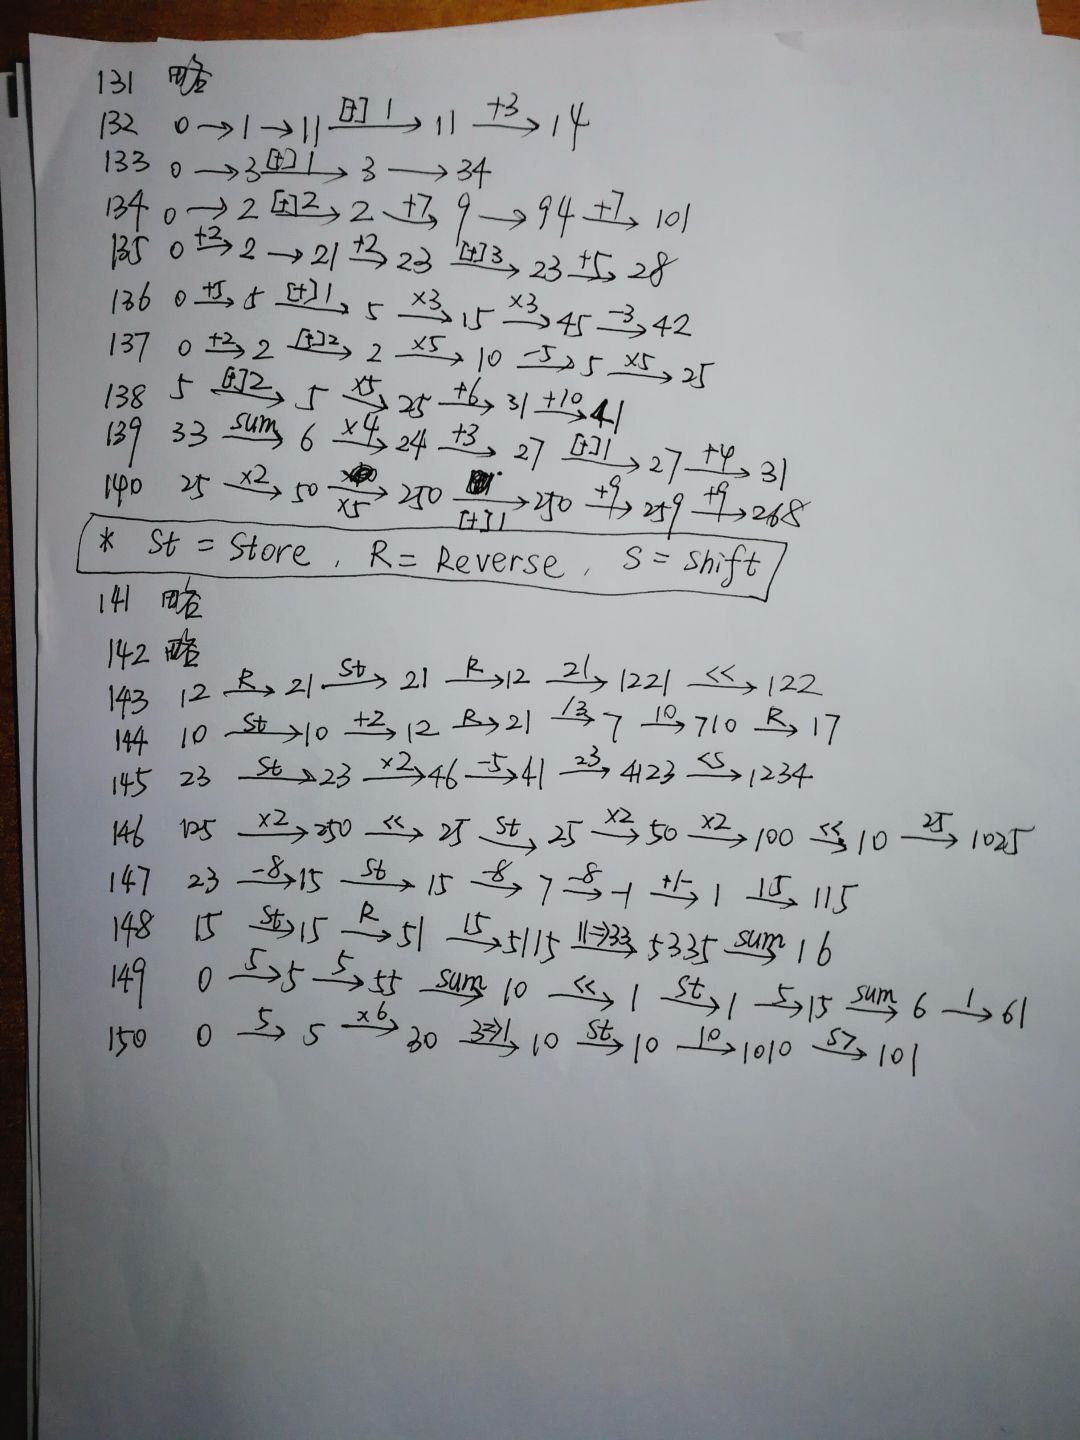 131 略
132 0 → 1 → 11 [+]1→ 11 +3→ 14
133 0 → 3 [+]1→ 3 → 34
134 0 → 2 [+]2→ 2 +7→ 9 → 94 +7→ 101
135 0 +2→ 2 → 21 +2→ 23 [+]3→ 23 +5→ 28
136 0 +5→ 5 [+]1→ 5 ×3→ 15 ×3→ 45 -3→ 42
137 0 +2→ 2 [+]2→ 2 ×5→ 10 -5→ 5 ×5→ 25
138 5 [+]2→ 5 ×5→ 25 +6→ 31 +10→ 41
139 33 sum→ 6 ×4→ 24 +3→ 27 [+]1→ 27 +4→ 31
140 25 ×2→ 50 ×5→ 250 [+]1→ 250 +9→ 259 +9→ 268
* St = Store, R = Reverse, S = Shift
141 略
142 略
143 12 R→ 21 St→ 21 R→ 12 21→ 1221 <<→ 122
144 10 St→ 10 +2→ 12 R→ 21 /3→ 7 10→ 710 R→ 17
145 23 St→ 23 ×2→ 46 -5→ 41 23→ 4123 <S→ 1234
146 125 ×2→ 250 <<→ 25 St→ 25 ×2→ 50 ×2→ 100 <<→ 10 25→ 1025
147 23 -8→ 15 St→ 15 -8→ 7 -8→ -1 +/-→ 1 15→ 115
148 15 St→ 15 R→ 51 15→ 5115 11⇒33→ 5335 sum→ 16
149 0 5→ 5 5→ 55 sum→ 10 <<→ 1 St→ 1 5→ 15 sum→ 6 1→ 61
150 0 5→ 5 ×6→ 30 3⇒1→ 10 St→ 10 10→ 1010 S>→ 101